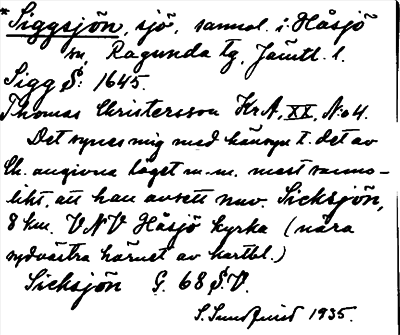 * Siggsjön, sjö, sannol. i Håsjö
sn, Ragunda tg, Jämtl. l.
Sigg S: 1645.
Thomas Christersson KrA, XX, No 4.
Det synes mig med hänsyn t. det av
Ch. angivna läget m.m. mest sanno-
likt, att han avsett nuv. Sicksjön,
8 km. VNV Håsjö kyrka (nära
sydvästra hörnet av kartbl.)
Sicksjön G. 68 S.V.
S. Sundquist 1935.